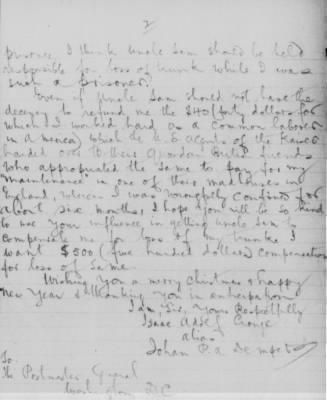 2
prisoner I think Uncle Sam should be held
responsible for loss of trunk while I was
such a prisoner.
Even if Uncle Sam should not have the
decency to refund me the $40 forty dollars for
which I worked hard as a common laborer
in America which the U.S. agents of the Kaiser
handed over to their British friends
who appropriated the same to pay for my
maintenance in one of their madhouses in
England, wherein I was wrongfully confined for
about six months, I hope you will be so kind
to use your influence in getting Uncle Sam to
compensate me for loss of my trunk. I
want $500 (five hundred dollars) compensation
for loss of same.
Wishing you a merry Christmas & happy
New Year & thanking you in anticipation
I am, Sir, Yours Respectfully
Isaac
alias
Johan P. a
To
The Postmaster General
Washington D.C